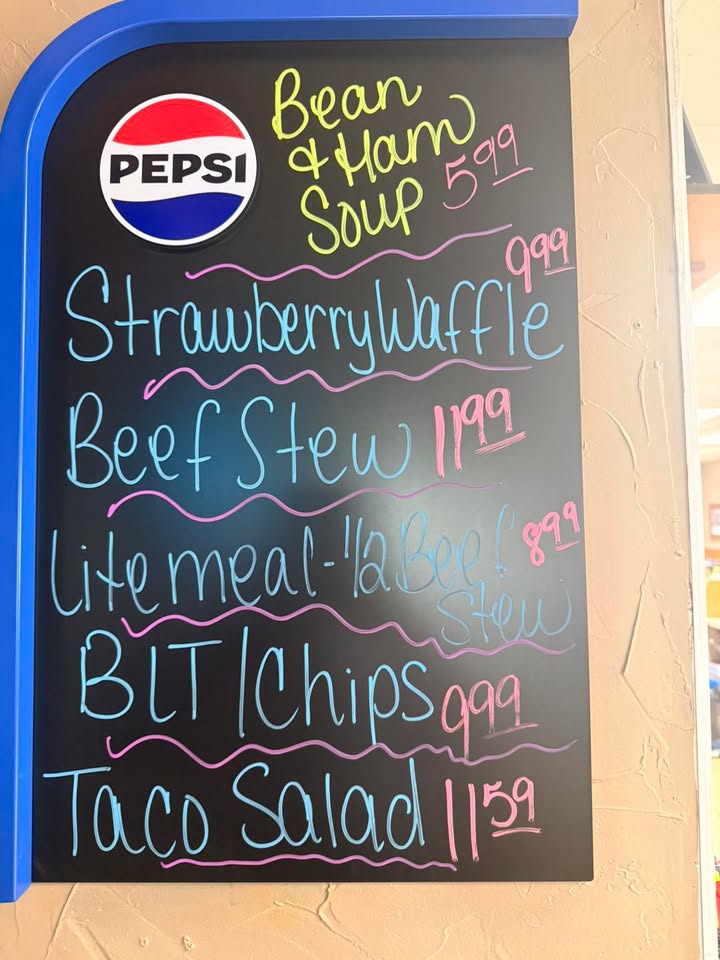 PEPSI
Bean
& Ham
Soup 5.99
9.99
Strawberry Waffle
Beef Stew 11.99
Lite meal - 1/2 Beef 8.99
Stew
BLT/Chips 9.99
Taco Salad 11.59